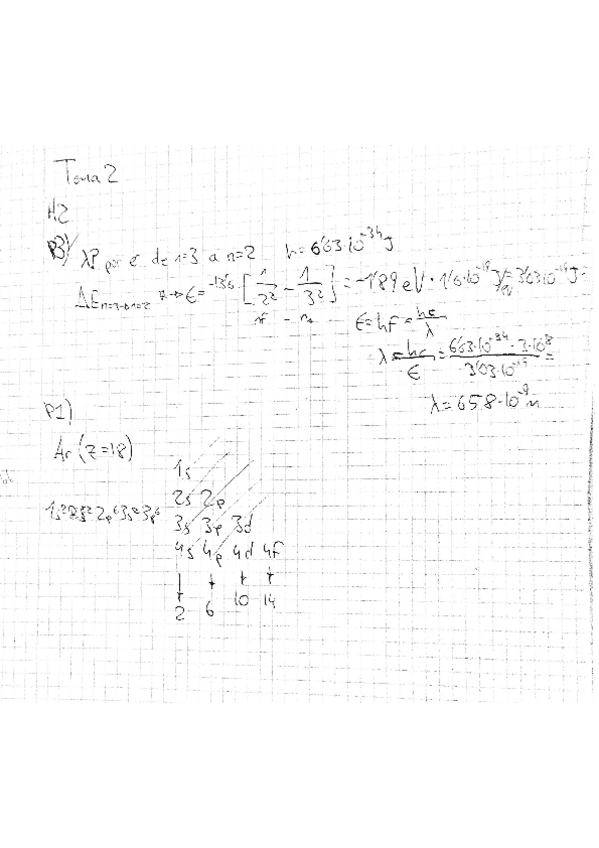 Tema 2
H2
P3) λ? por e⁻ de n=3 a n=2 h=6'63·10⁻³⁴ J
ΔE n=3→n=2 → E= -13'6 [1/2² - 1/3²] = -1'89 eV · 1'6·10⁻¹⁹ J/eV = 3'03·10⁻¹⁹ J =
E=hf=hc/λ
λ=hc/E=6'63·10⁻³⁴·3·10⁸/3'03·10⁻¹⁹=
λ=658·10⁻⁹ m
P1)
Ar (Z=18)
1s
2s 2p
1s²2s²2p⁶3s²3p⁶
3s 3p 3d
4s 4p 4d 4f
2 6 10 14